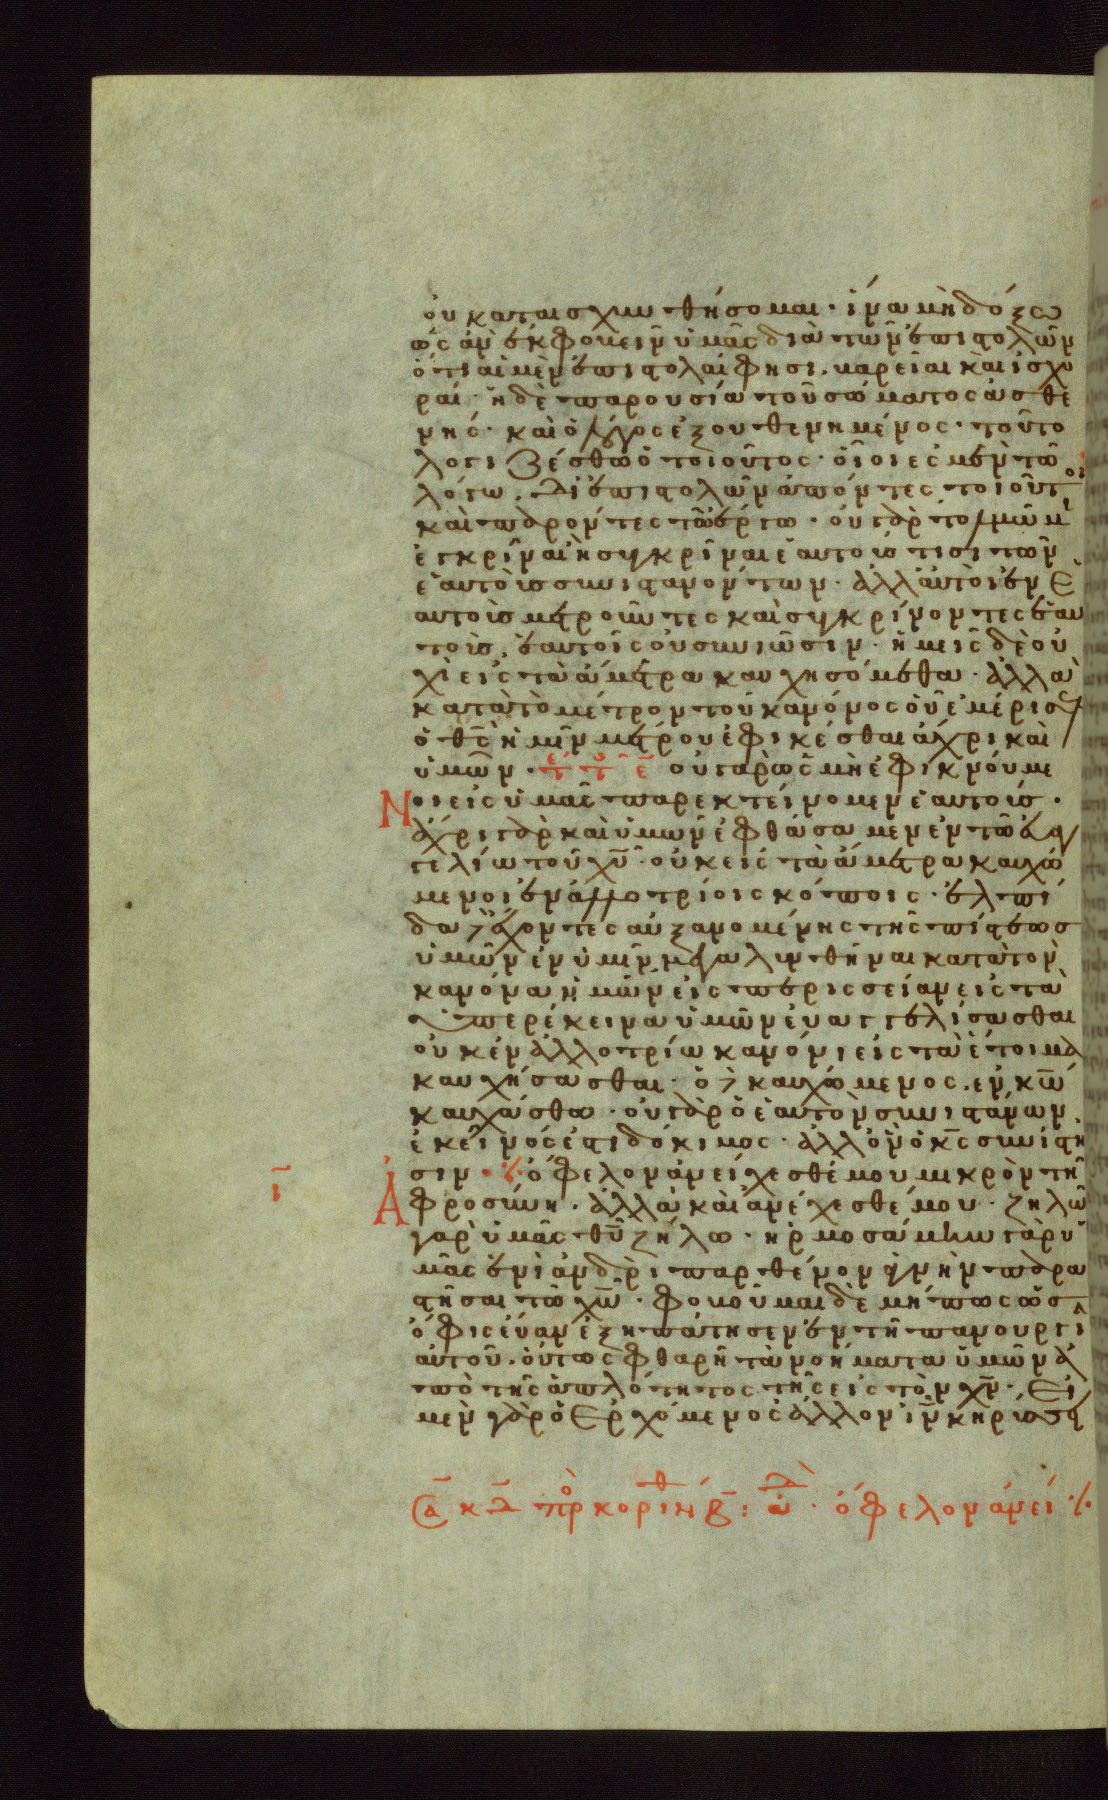 οὐκ αἰσχυνθήσομαι· ἵνα μὴ δόξω
ὡς ἂν ἐκφοβεῖν ὑμᾶς διὰ τῶν ἐπιστολῶν
ὅτι αἱ μὲν ἐπιστολαί φησι, βαρεῖαι καὶ ἰσχυ
ραί· ἡ δὲ παρουσία τοῦ σώματος ἀσθε
νής· καὶ ὁ λόγος ἐξουθενημένος· τοῦτο
λογιζέσθω ὁ τοιοῦτος· ὅτι οἷοι ἐσμὲν τῶ
λόγω, δι' ἐπιστολῶν ἀπόντες τοιοῦτοι
καὶ παρόντες τῶ ἔργω· οὐ γὰρ τολμῶμ
ἐγκρῖναι ἢ συγκρῖναι ἑαυτούς τισι τῶν
ἑαυτοὺς συνιστανόντων· ἀλλ' αὐτοὶ ἐν ἑ
αυτοῖς μετροῦντες καὶ συγκρίνοντες ἑαυ
τοὺς, ἑαυτοῖς οὐ συνιῶσιν· ἡμεῖς δὲ οὐ
χὶ εἰς τὰ ἄμετρα καυχησόμεθα· ἀλλὰ
κατὰ τὸ μέτρον τοῦ κανόνος οὗ ἐμέρισεν
ὁ θς ἡμῖν μέτρου ἐφικέσθαι ἄχρι καὶ
ὑμῶν· οὐ γὰρ ὡς μὴ ἐφικνούμε
νοι εἰς ὑμᾶς παρεκτείνομεν ἑαυτούς·
ἄχρι γὰρ καὶ ὑμῶν ἐφθάσαμεν ἐν τῶ εὐαγ
γελίω τοῦ χυ· οὐκ εἰς τὰ ἄμετρα καυχώ
μενοι ἐν ἀλλοτρίοις κόποις· ἐλπί
δα δὲ ἔχοντες αὐξανομένης τῆς πίστεως
ὑμῶν ἐν ὑμῖν μεγαλυνθῆναι κατὰ τὸν
κανόνα ἡμῶν εἰς περισσείαν εἰς τὰ
ὑπερέκεινα ὑμῶν εὐαγγελίσασθαι
οὐκ ἐν ἀλλοτρίω κανόνι εἰς τὰ ἕτοιμα
καυχήσασθαι· ὁ δὲ καυχώμενος, ἐν κω
καυχάσθω· οὐ γὰρ ὁ ἑαυτὸν συνιστάνων
ἐκεῖνός ἐστι δόκιμος· ἀλλ' ὃν ὁ κς συνίστη
ι σιν· ὄφελον ἀνείχεσθέ μου μικρὸν τῆ
Ἀφροσύνη· ἀλλὰ καὶ ἀνέχεσθέ μου· ζηλῶ
γὰρ ὑμᾶς θυ ζήλω· ἡρμοσάμην γὰρ ὑ
μᾶς ἑνὶ ἀνδρὶ παρθένον ἁγνὴν παρα
στῆσαι τῶ χω· φοβοῦμαι δὲ μή πως ὡς
ὁ ὄφις εὔαν ἐξηπάτησεν ἐν τῆ πανουργί
αὐτοῦ, οὕτως φθαρῆ τὰ νοήματα ὑμῶν ἀ
πὸ τῆς ἁπλότητος τῆς εἰς τὸν χν· Εἰ
μὲν γὰρ ὁ ἐρχόμενος ἄλλον ιν κηρύσσει
κδ πρ κορινθ β: ἀδ· ὄφελον ἀνεί